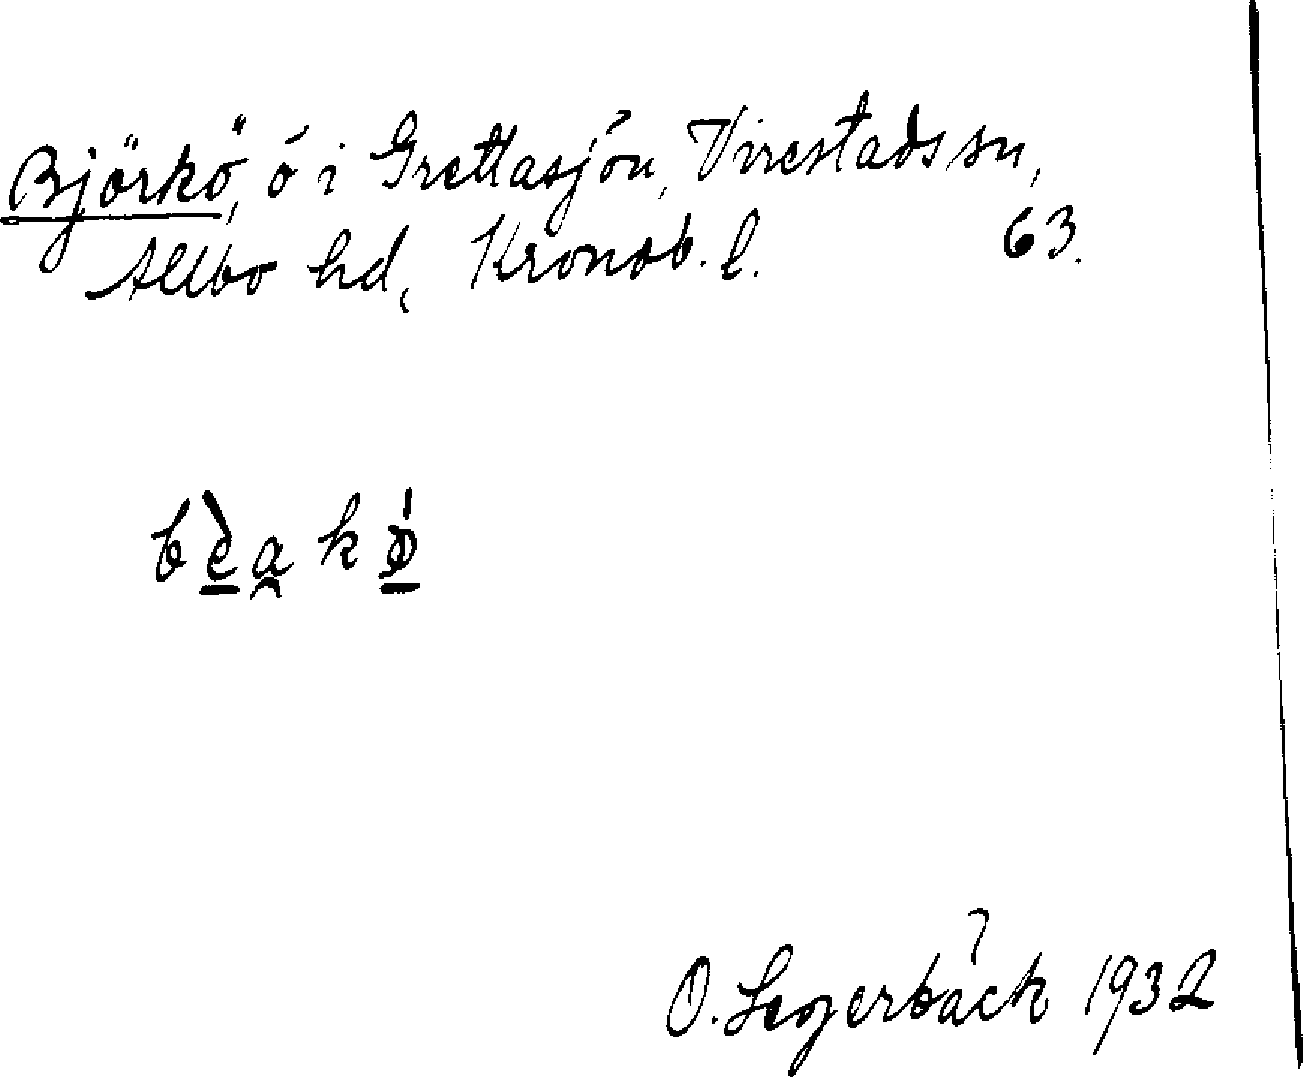 Björkö, ö i Grettasjön, Virestads sn,
Allbo hd, Kronob. l. 63.
bèa̯kǿ
O. Segerbäck 1932